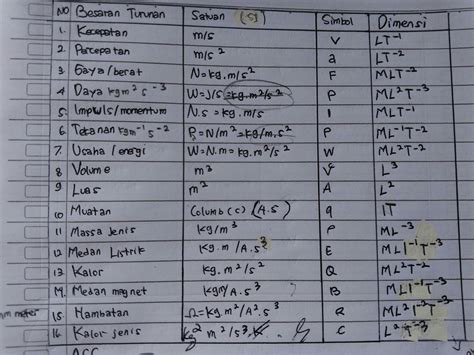 NO Besaran Turunan Satuan (SI) Simbol Dimensi
1. Kecepatan m/s V LT⁻¹
2. Percepatan m/s² a LT⁻²
3 Gaya/berat N=kg.m/s² F MLT⁻²
4 Daya kgm²s⁻³ W=J/s=kg.m²/s² P ML²T⁻³
5. Impuls/momentum N.s=kg.m/s I MLT⁻¹
6 Tekanan kgm⁻¹s⁻² P=N/m²=kg/m.s² P ML⁻¹T⁻²
7. Usaha/energi W=N.m=kg.m²/s² W ML²T⁻²
8 Volume m³ V L³
9 Luas m² A L²
10 Muatan Columb(c) (A.S) q IT
11 Massa Jenis kg/m³ ρ ML⁻³
12 Medan Listrik kg.m/A.s³ E MLI⁻¹T⁻³
13 Kalor kg.m²/s² Q ML²T⁻²
14. Medan magnet kgm/A.s³ B MLI⁻¹T⁻³
15. Hambatan Ω=kg.m²/A².s³ R ML²I⁻²T⁻³
16. Kalor jenis m²/s³.K C L²T⁻³
meter